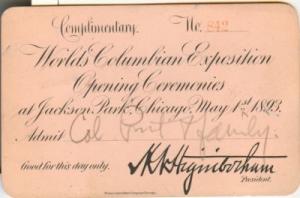 Complimentary. No. 842
World's Columbian Exposition
Opening Ceremonies
at Jackson Park, Chicago, May 1st 1893.
Admit Col & family.
Good for this day only. H. N. Higinbotham
President.